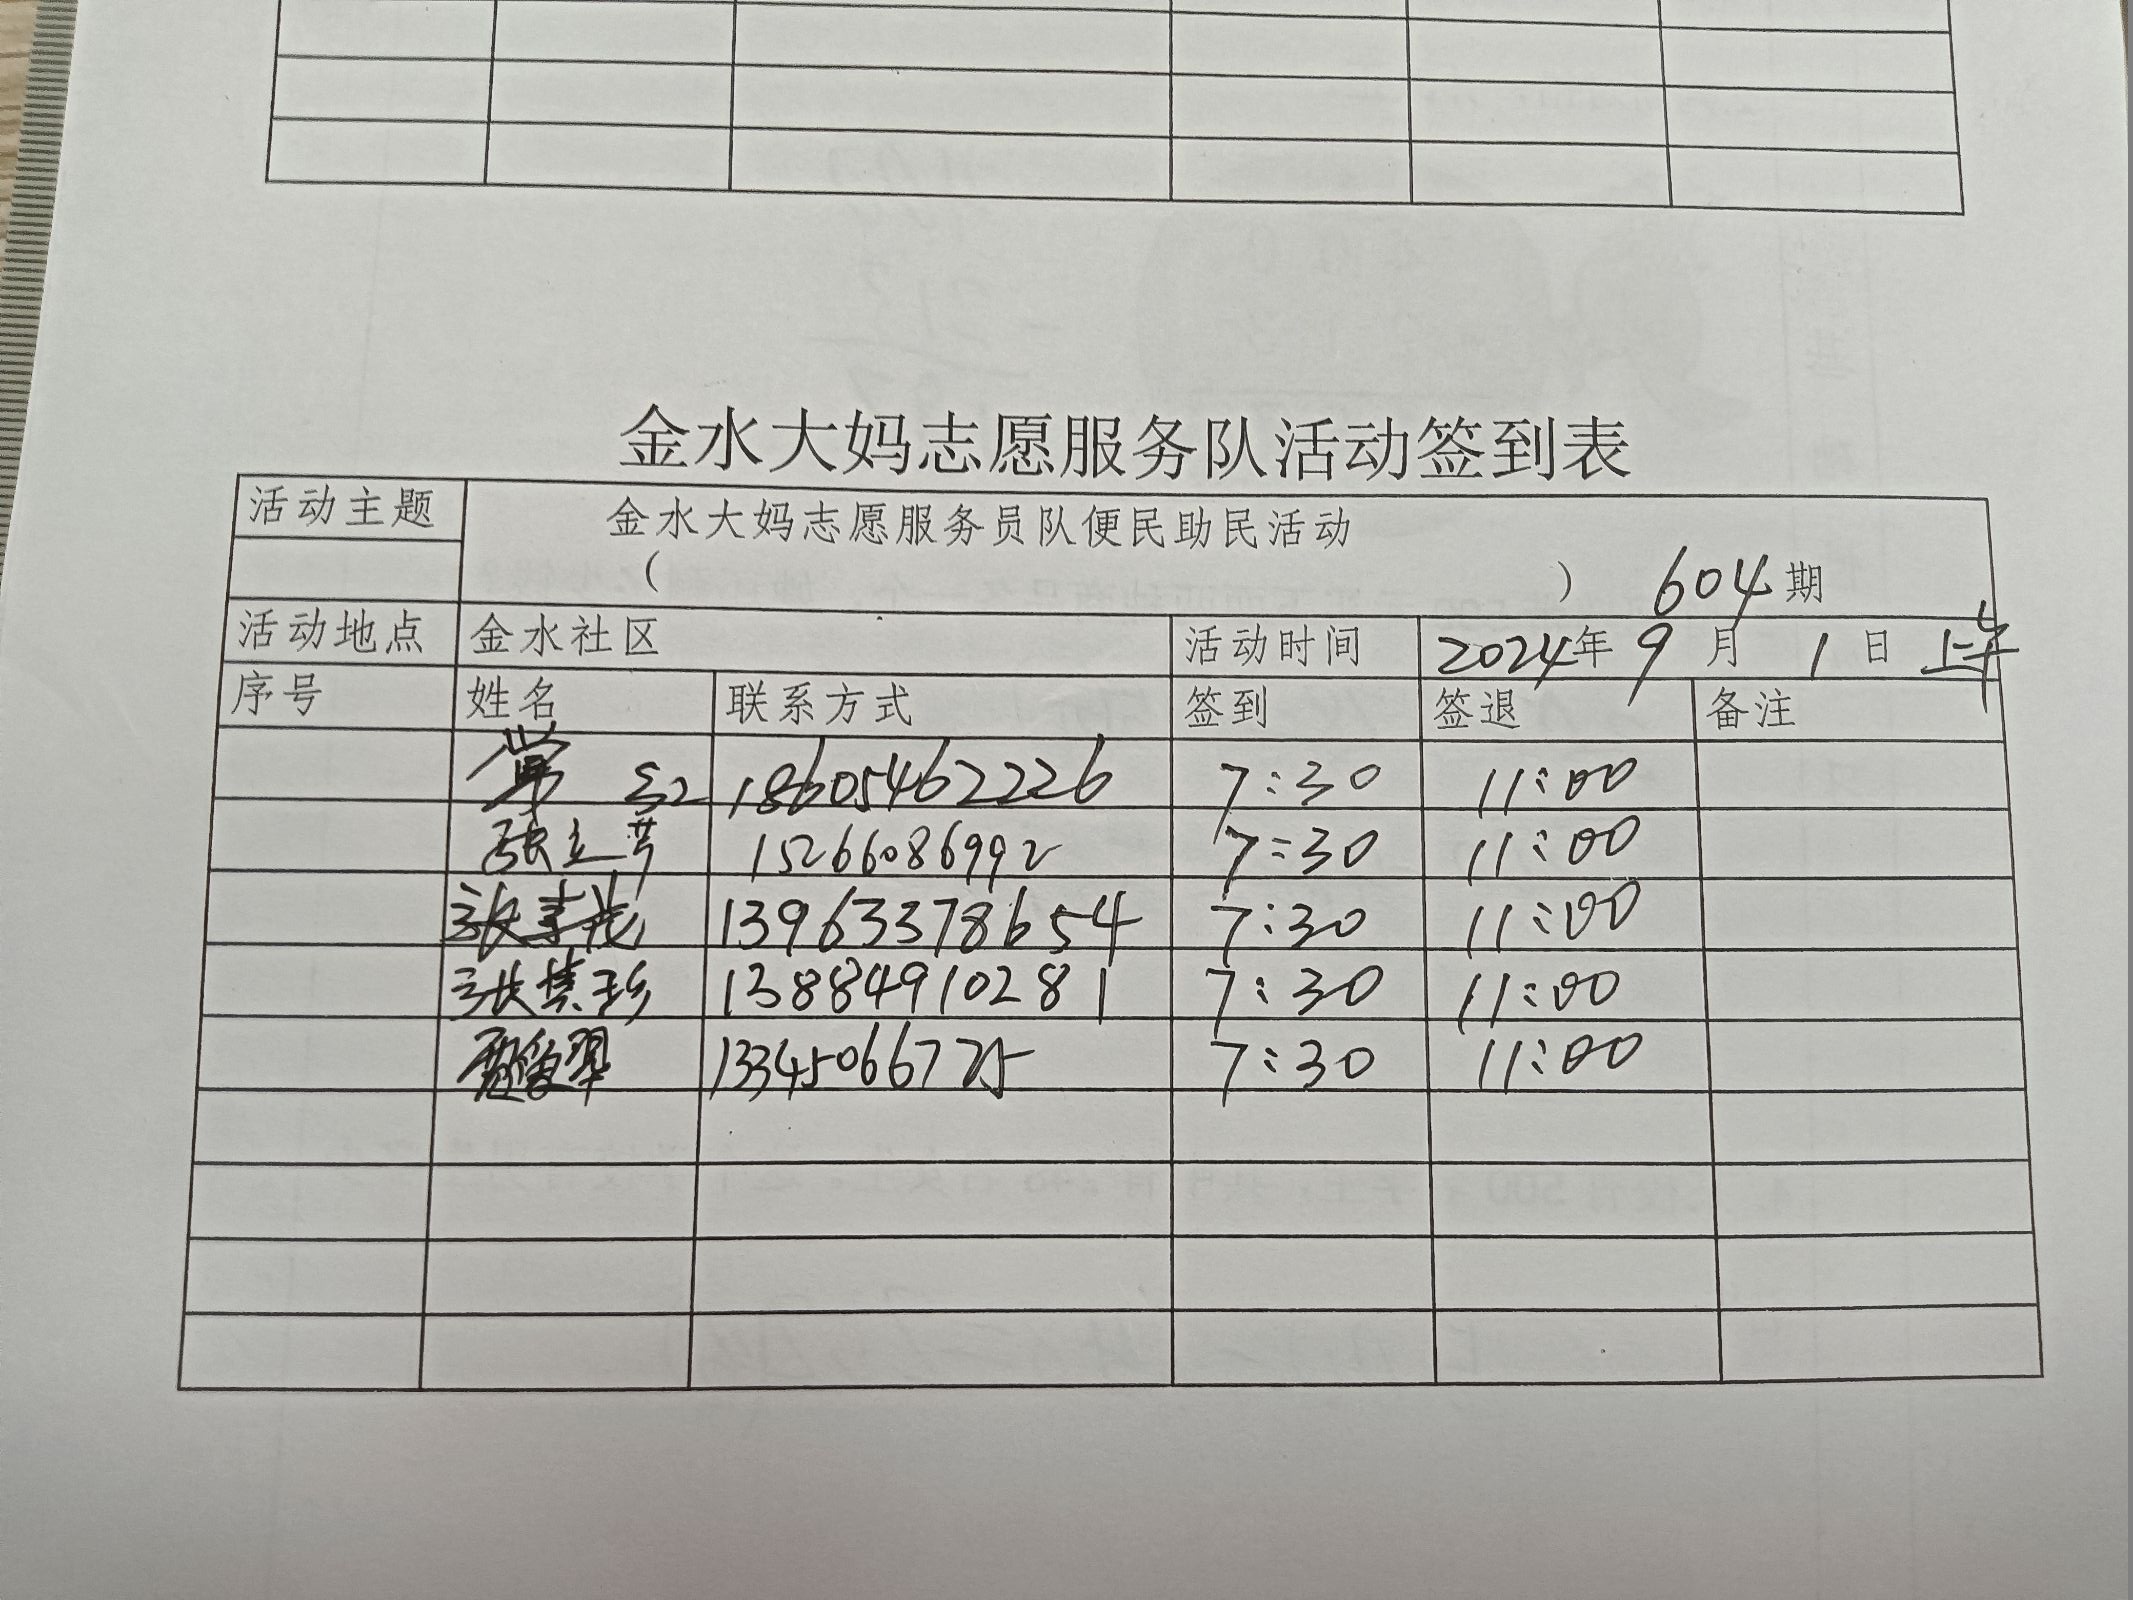 金水大妈志愿服务队活动签到表
活动主题 金水大妈志愿服务员队便民助民活动
( ) 604期
活动地点 金水社区 活动时间 2024年 9 月 1 日 上午
序号 姓名 联系方式 签到 签退 备注
18605462226 7:30 11:00
张立芹 15266086992 7:30 11:00
张 13963378654 7:30 11:00
张 珍 13884910281 7:30 11:00
翠 13345066775 7:30 11:00